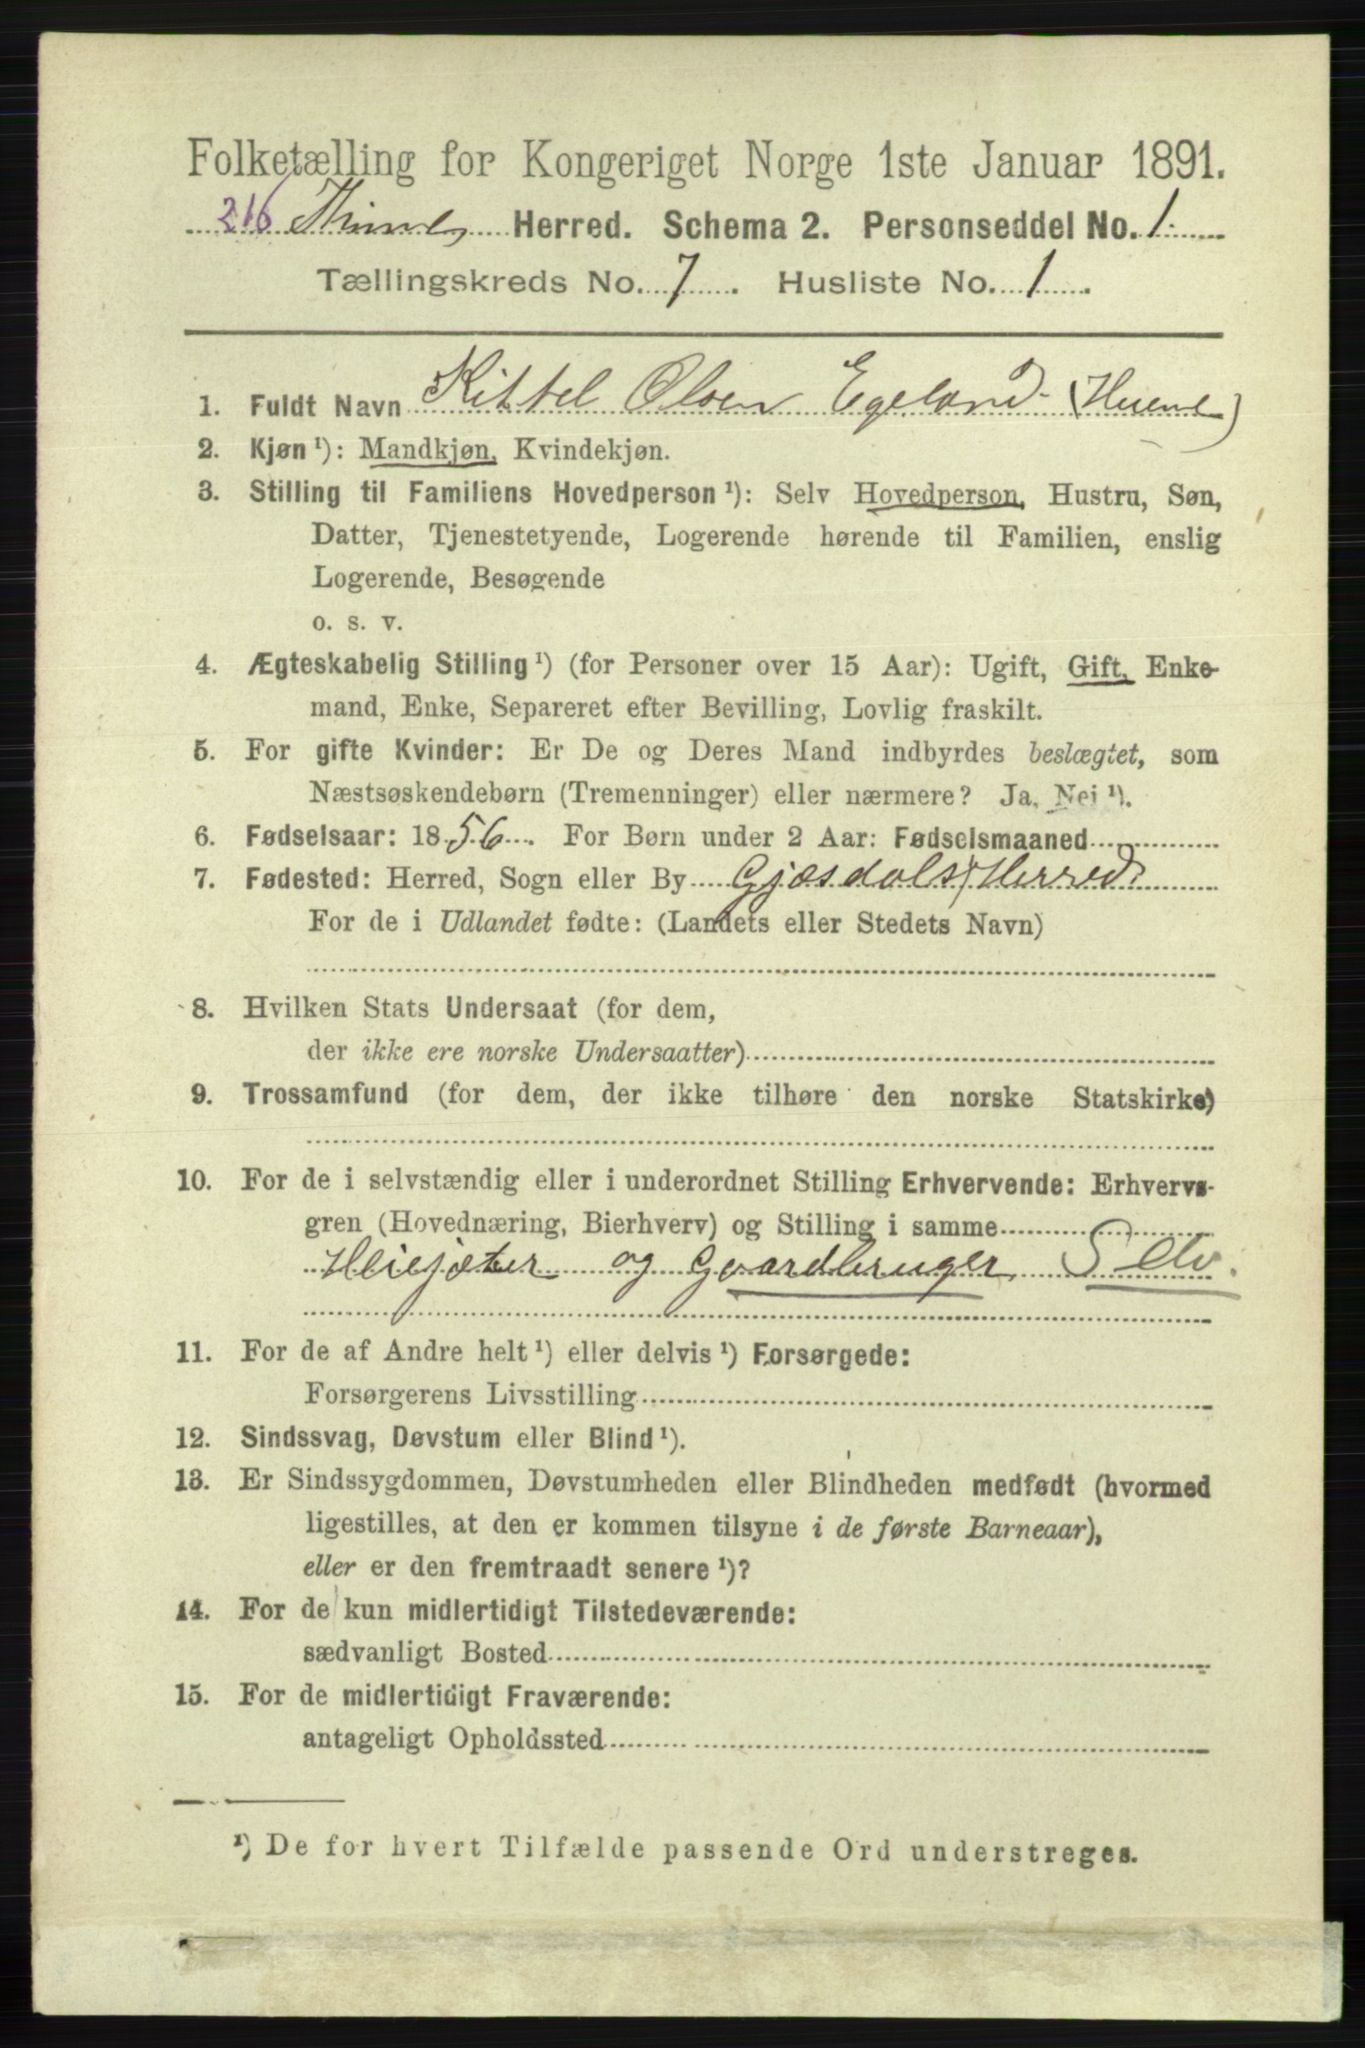 Folketælling for Kongeriget Norge 1ste Januar 1891.
216 Thime Herred. Schema 2. Personseddel No. 1
Tællingskreds No. 7. Husliste No. 1.
1. Fuldt Navn Kittel Olsen Egeland
2. Kjøn ¹): Mandkjøn, Kvindekjøn.
3. Stilling til Familiens Hovedperson ¹): Selv Hovedperson, Hustru, Søn,
Datter, Tjenestetyende, Logerende hørende til Familien, enslig
Logerende, Besøgende
o. s. v.
4. Ægteskabelig Stilling ¹) (for Personer over 15 Aar): Ugift, Gift, Enke-
mand, Enke, Separeret efter Bevilling, Lovlig fraskilt.
5. For gifte Kvinder: Er De og Deres Mand indbyrdes beslægtet, som
Næstsøskendebørn (Tremenninger) eller nærmere? Ja, Nei ¹).
6. Fødselsaar: 1856. For Børn under 2 Aar: Fødselsmaaned
7. Fødested: Herred, Sogn eller By Gjæsdals Herred
For de i Udlandet fødte: (Landets eller Stedets Navn)
8. Hvilken Stats Undersaat (for dem,
der ikke ere norske Undersaatter)
9. Trossamfund (for dem, der ikke tilhøre den norske Statskirke)
10. For de i selvstændig eller i underordnet Stilling Erhvervende: Erhvervs-
gren (Hovednæring, Bierhverv) og Stilling i samme
Heiejæter og Gaardbruger Selv.
11. For de af Andre helt ¹) eller delvis ¹) Forsørgede:
Forsørgerens Livsstilling
12. Sindssvag, Døvstum eller Blind ¹).
13. Er Sindssygdommen, Døvstumheden eller Blindheden medfødt (hvormed
ligestilles, at den er kommen tilsyne i de første Barneaar),
eller er den fremtraadt senere ¹)?
14. For de kun midlertidigt Tilstedeværende:
sædvanligt Bosted
15. For de midlertidigt Fraværende:
antageligt Opholdssted
¹) De for hvert Tilfælde passende Ord understreges.